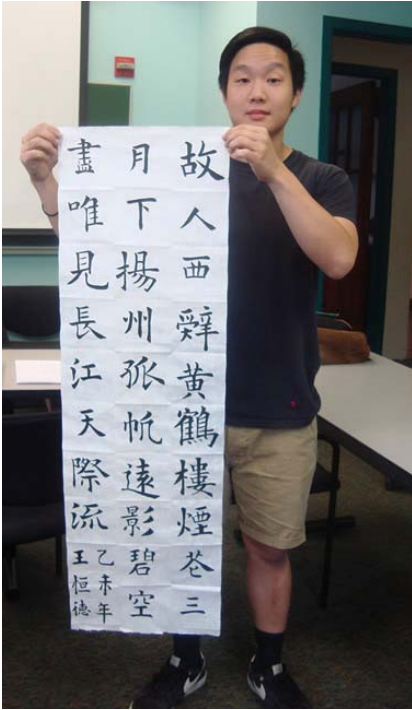 故人西辭黄鶴樓煙花三
月下揚州孤帆遠影碧空
盡唯見長江天際流
乙未年
王恒德